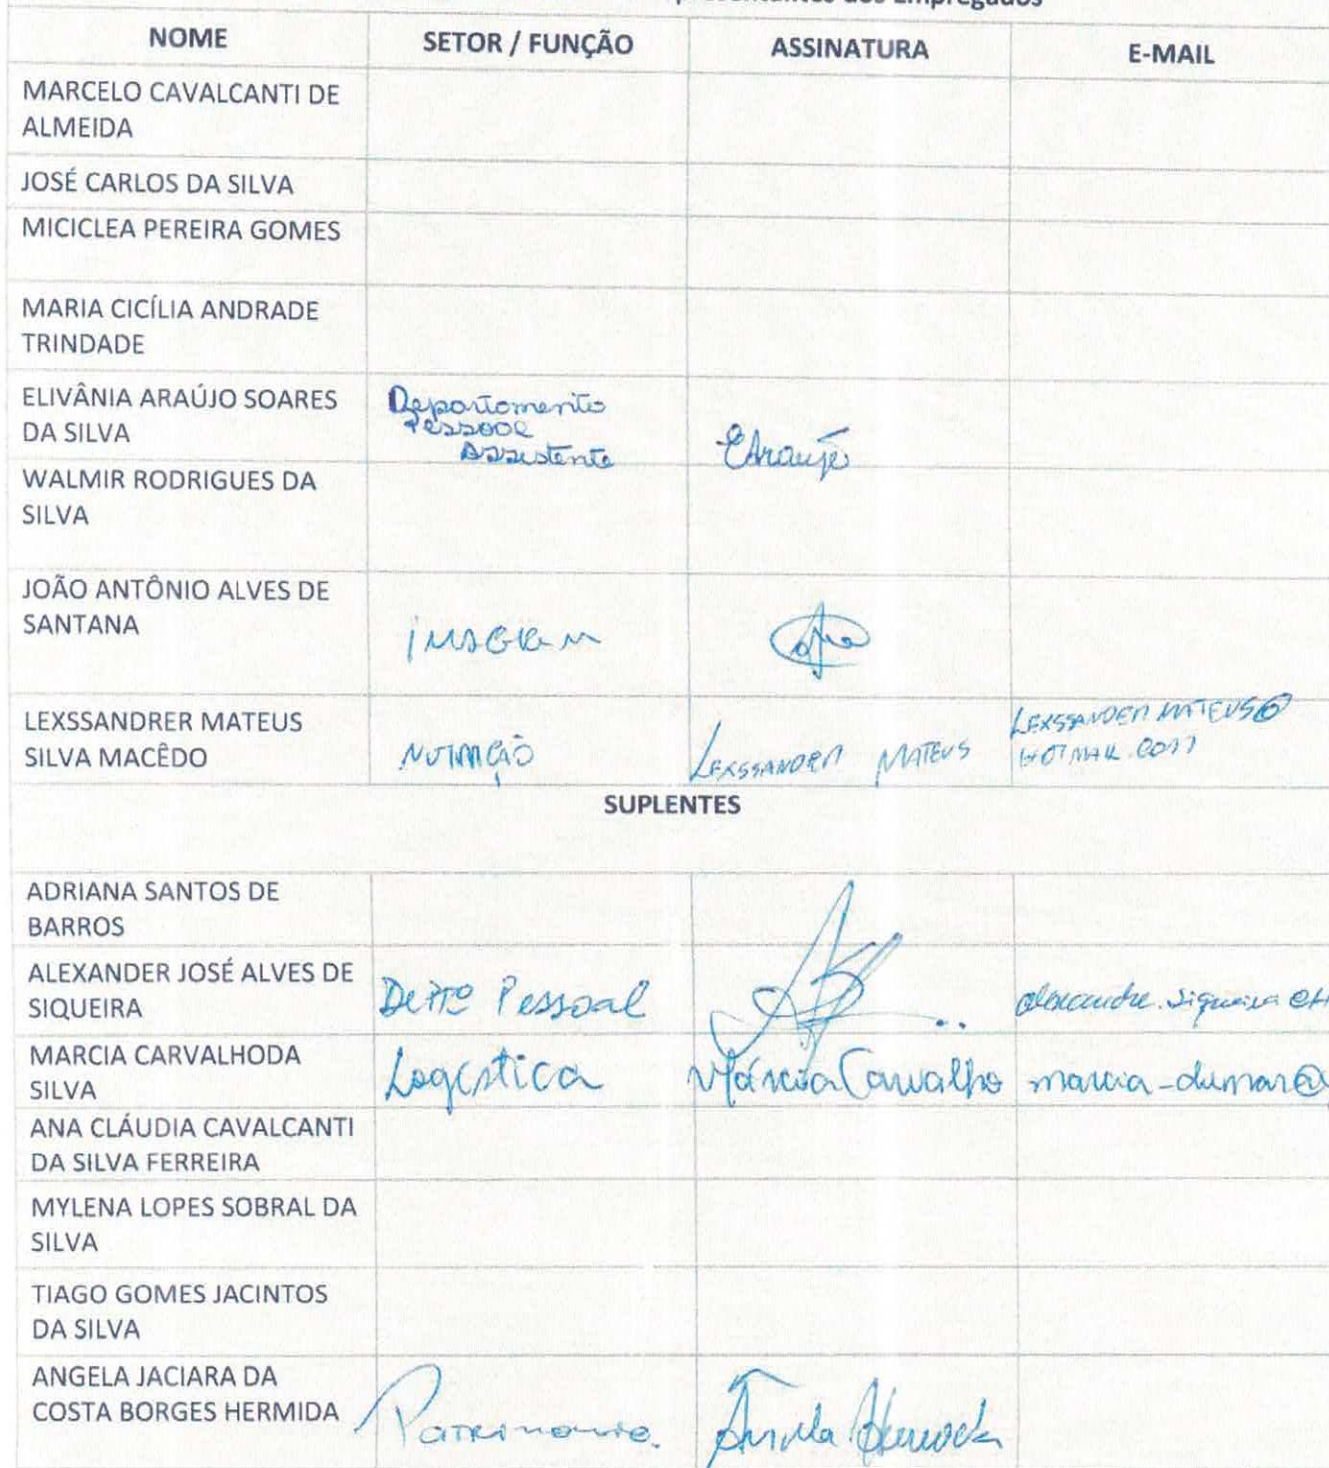 dos Empregados
NOME SETOR / FUNÇÃO ASSINATURA E-MAIL
MARCELO CAVALCANTI DE
ALMEIDA
JOSÉ CARLOS DA SILVA
MICICLEA PEREIRA GOMES
MARIA CICÍLIA ANDRADE
TRINDADE
ELIVÂNIA ARAÚJO SOARES
DA SILVA
Departamento
Pessoal
Assistente
EAraújo
WALMIR RODRIGUES DA
SILVA
JOÃO ANTÔNIO ALVES DE
SANTANA
imagem
LEXSSANDRER MATEUS
SILVA MACÊDO
NUTRIÇÃO
LEXSSANDER MATEUS
LEXSSANDER MATEUS@
HOTMAIL.COM
SUPLENTES
ADRIANA SANTOS DE
BARROS
ALEXANDER JOSÉ ALVES DE
SIQUEIRA
Deptº Pessoal
alexandre.siqueira@h
MARCIA CARVALHODA
SILVA
Logística
Márcia Carvalho
marcia-dumar@
ANA CLÁUDIA CAVALCANTI
DA SILVA FERREIRA
MYLENA LOPES SOBRAL DA
SILVA
TIAGO GOMES JACINTOS
DA SILVA
ANGELA JACIARA DA
COSTA BORGES HERMIDA
Patrimonio.
Angela Hermida